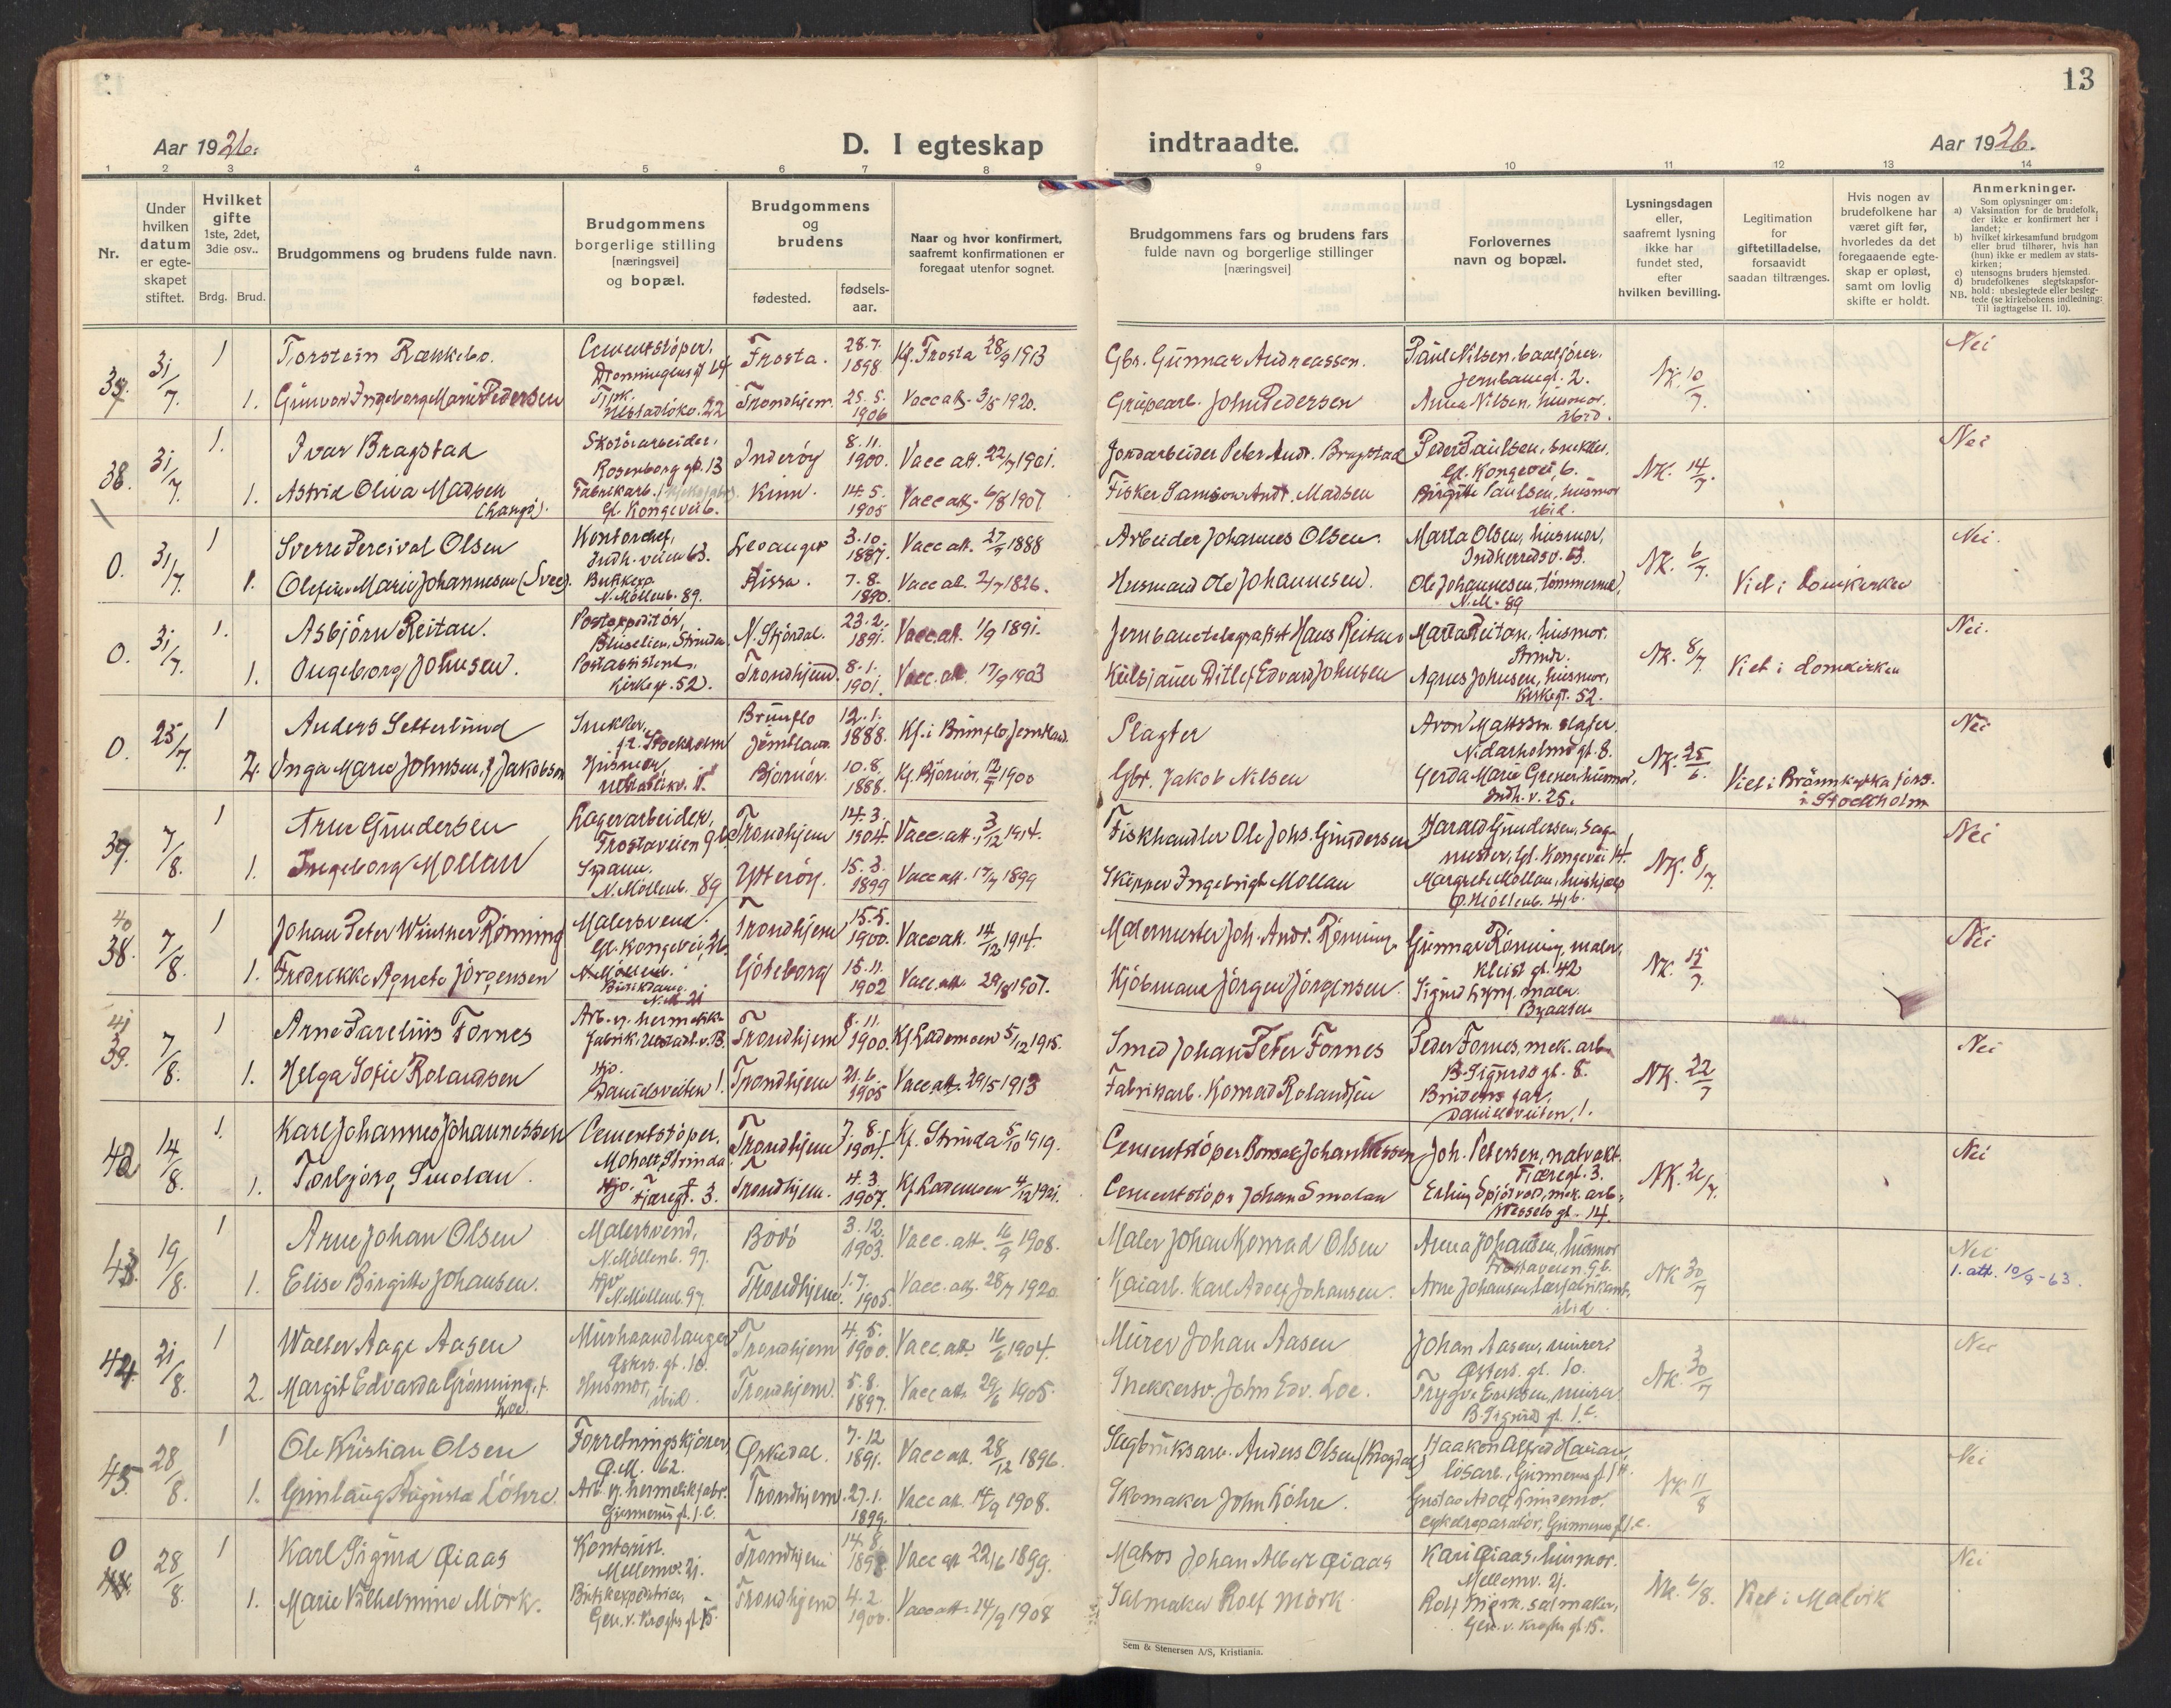 13
Aar 1926.
D. I egteskap indtraadte.
Aar 1926.
1 2 3 4 5 6 7 8 9 10 11 12 13 14
Nr.
Under hvilken datum er egteskapet stiftet.
Hvilket gifte 1ste, 2det, 3die osv..
Brdg. Brud.
Brudgommens og brudens fulde navn.
Brudgommens borgerlige stilling [næringsvei] og bopæl.
Brudgommens og brudens
fødested.
fødsels-aar.
Naar og hvor konfirmert, saafremt konfirmationen er foregaat utenfor sognet.
Brudgommens fars og brudens fars fulde navn og borgerlige stillinger [næringsvei]
Forlovernes navn og bopæl.
Lysningsdagen eller, saafremt lysning ikke har fundet sted, efter hvilken bevilling.
Legitimation for giftetilladelse, forsaavidt saadan tiltrænges.
Hvis nogen av brudefolkene har været gift før, hvorledes da det foregaaende egteskap er opløst, samt om lovlig skifte er holdt.
Anmerkninger.
Som oplysninger om:
a) Vaksination for de brudefolk, der ikke er konfirmert her i landet;
b) hvilket kirkesamfund brudgom eller brud tilhører, hvis han (hun) ikke er medlem av statskirken;
c) utensogns bruders hjemsted.
d) brudefolkenes slegtskapsforhold: ubeslegtede eller beslegtede (se kirkebokens indledning: Til iagttagelse II. 10).
NB.
37. 31/7. 1 Torstein Rækkebo. Cementstöper, Dronningensgt 14 Frosta. 28.7. 1898. Kf. Frosta 28/9 1913 Gbr. Gunnar Andreassen. Paul Nilsen, baatförer, Jernbanegt. 2. NK. 10/7. Nei
1. Gunvor Ingeborg Marie Pedersen 22 Trondhjem. 25.5. 1906 Vacc att. 3/5 1920. John Pedersen Anna Nilsen, husmor. ibid.
38. 31/7. 1. Ivar Bragstad Skotöiarbeider, Rosenborg gt. 13 Inderöy 8.11. 1900. Vacc att. 22/7 1901. Jordarbeider Peter Andr. Bragstad Peder Paulsen, snekker, Gl. Kongevei 6. NK. 14/7. Nei
1. Astrid Oliva Madsen Fabrikarb. Gl. Kongevei 6. Kinn. 14.5. 1905 Vacc att. 6/8 1907 Fisker Samson Andr. Madsen Birgitte Paulsen, husmor ibid.
0. 31/7. 1 Sverre Percival Olsen Kontorchef, Indh. veien 63. Levanger 3.10. 1887. Vacc att. 27/9 1888 Arbeider Johannes Olsen. Marta Olsen, husmor, Indherredsv. 63. NK. 6/7. Viet i Domkirken Nei.
1. Olefine Marie Johannesen (Svee). N. Möllenb. 89. Rissa. 7.8. 1890. Vacc att. 2/7 1826. Husmand Ole Johannesen. Ole Johannesen, tömmermd, N.M. 89
0. 31/7. 1. Asbjörn Reitan. Postexpeditör, Strinda. N. Stjördal. 23.2. 1891. Vacc. att. 1/9 1891. Jernbanetelegrafist Hans Reitan Marta Reitan, husmor. Strinda. NK. 8/7. Viet i Domkirken Nei.
1. Ingeborg Johnsen. Postassistent, Kirkegt. 52. Trondhjem. 8.1. 1901. Vacc. att. 17/9 1903 Ditlef Edvard Johnsen Agnes Johnsen, husmor, Kirkegt. 52.
0. 25/7. 1 Anders Setterlund Snekker, Stockholm Brunflo Jemtland 12.1. 1888. Kf. i Brunflo, Jemtland. Slagter Aron Mattsson, slagter, Nidarholms gt. 8. NK. 25/6. Viet i Brännkyrka förs. i Stockholm Nei
2. Inga Marie Johnsen, f. Jakobsen Husmor, Björnör. 10.8. 1888. Kf. Björnör, 1900 Gbr. Jakob Nilsen Gerda Marie Grener, husmor, Indh. v. 25.
39. 7/8. 1 Arne Gundersen Lagerarbeider, Frostaveien 9 b. Trondhjem 14.3. 1904. Vacc. att. 3/12 1914. Fiskhandler Ole Johs. Gundersen Harald Gundersen, Gl. Kongevei 14. NK. 8/7. Nei
1. Ingeborg Mollan N. Möllenb. 89 Ytteröy. 15.3. 1899 Vacc att. 17/7 1899 Skipper Ingebrigt Mollan Margrete Mollan, hushjælp Ø. Möllenb. 41 b.
40 38. 7/8. 1 Johan Peter Wintner Rönning Malersvend. Gl. Kongevei, 26 Trondhjem 15.5. 1900. Vacc att. 14/12 1914. Malermester Joh. Andr. Rönning. Gunnar Rönning, maler, Kleist gt. 42 NK. 15/7. Nei
1. Fredrikke Agnete Jörgensen N. M. 21 Göteborg 15.11. 1902 Vacc. att. 29/8 1907. Kjöbmand Jörgen Jörgensen. Sigurd maler. Byaasen
41 39. 7/8. 1 Arne Parelius Fornes Arb. v. hermetikkfabrik, Trondhjem 8.11. 1900. Kf. Lademoen 5/12 1915. Smed Johan Peter Fornes Peder Fornes, mek. arb. B. Sigurds gt. 8. NK. 22/7 Nei
1. Helga Sofie Rolandsen Hjo. Danielsveiten 1. Trondhjem 21.6. 1905 Vacc att. 29/5 1913 Fabrikarb. Konrad Rolandsen Brudens far, Danielsveiten, 1.
42 14/8. 1. Karl Johannes Johannessen Cementstöper, Moholt, Strinda. Trondhjem 7.8. 1904. Kf. Strinda 5/10 1919. Cementstöper Johannessen Joh. Petersen, natvakt. Fjæregt. 3. NK. 21/7. Nei
1. Torbjörg Smolan. Hjo. Fjæregt. 3. Trondhjem. 4.3. 1907. Kf. Lademoen 4/12 1921. Cementstöper Johan Smolan Erling Spjötvold, mek. arb., Wessels gt. 14.
43. 19/8. 1 Arne Johan Olsen Malersvend, N. Möllenb. 97. Bodö 3.12. 1903. Vacc. att. 16/9 1908. Maler Johan Konrad Olsen Anna Johansen, husmor Frostaveien, 9 b. NK 30/7 Nei
1. Elise Birgitte Johansen. Hjo N. Möllenb. 97. Trondhjem. 1.7. 1905. Vacc. att. 28/7 1920 Kaiarb. Karl Adolf Johansen. Arne Johansen, ibid. 1. att. 10/9-63.
44. 21/8. 1 Walter Aage Aasen Murhaandlanger Østers. gt. 10. Trondhjem 4.5. 1900. Vacc. att. 16/6 1904. Murer Johan Aasen Johan Aasen, murer, Østers. gt. 10. NK. 30/7 Nei
2. Margit Edvarda Grönning, f. Loe. Husmor, ibid. Trondhjem. 5.8. 1897. Vacc att. 29/6 1905. Snekkersv. John Edv. Loe. Trygve Eriksen, murer B. Sigurds gt. 1. c.
45. 28/8. 1 Ole Kristian Olsen Forretningskjörer, Ø.M. 62. Orkedal. 7.12 1891. Vacc att. 28/12 1896. Sagbruksarb. Anders Olsen Haakon Alfred losarb., Gunnerus gt. NK 11/8 Nei
1. Gunlaug Augusta Löhre. Arb. v. hermetikfabr. Gunnerus gt. 1. C. Trondhjem. 27.1. 1899. Vacc att. 14/9 1908. Skomaker John Löhre. Gustav Adolf Lindemo, cykelreparatör, Gunnerus gt. 1. c.
0 28/8. 1 Karl Sigurd Øiaas Kontorist. Mellemv. 21. Trondhjem 14.8. 1898 Vacc att 22/6 1899. Matros Johan Albert Øiaas Kari Øiaas, husmor. Mellemv. 21. NK. 6/8. Viet i Malvik Nei
1. Marie Vilhelmine Mörk. Butikexpeditrice, Gen. v. Kroghs gt 15 Trondhjem 4.2. 1900. Vacc att. 14/9 1908 Salmaker Rolf Mörk. Rolf Mörk, salmaker, Gen. v. Kroghs gt. 15.
Sem & Stenersen A/S, Kristiania.